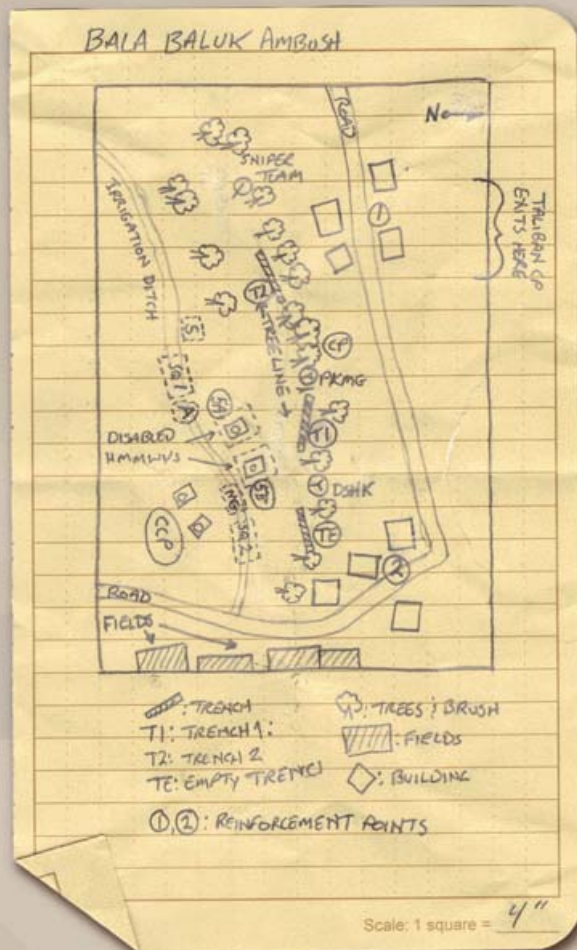 BALA BALUK AMBUSH
ROAD
N
SNIPER
TEAM
TALIBAN CP
EXITS HERE
1
IRRIGATION DITCH
T2
TREELINE
S
CP
PKMG
SQ1
A
5A
T1
DISABLED
HMMWVS
5B
DSHK
MG
SQ2
TE
CCP
2
ROAD
FIELDS
: TRENCH
T1: TRENCH 1:
T2: TRENCH 2
TE: EMPTY TRENCH
: TREES & BRUSH
: FIELDS
: BUILDING
1, 2: REINFORCEMENT POINTS
Scale: 1 square = 4"